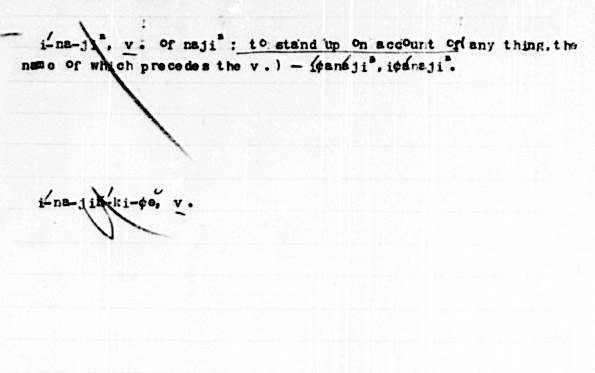 í-na-jiⁿ, v. of najiⁿ: to stand up on account of( any thing, the
name of which precedes the v.) — íȼanájiⁿ, iȼánajiⁿ.
í-na-jiⁿ-ki-ȼĕ, v.